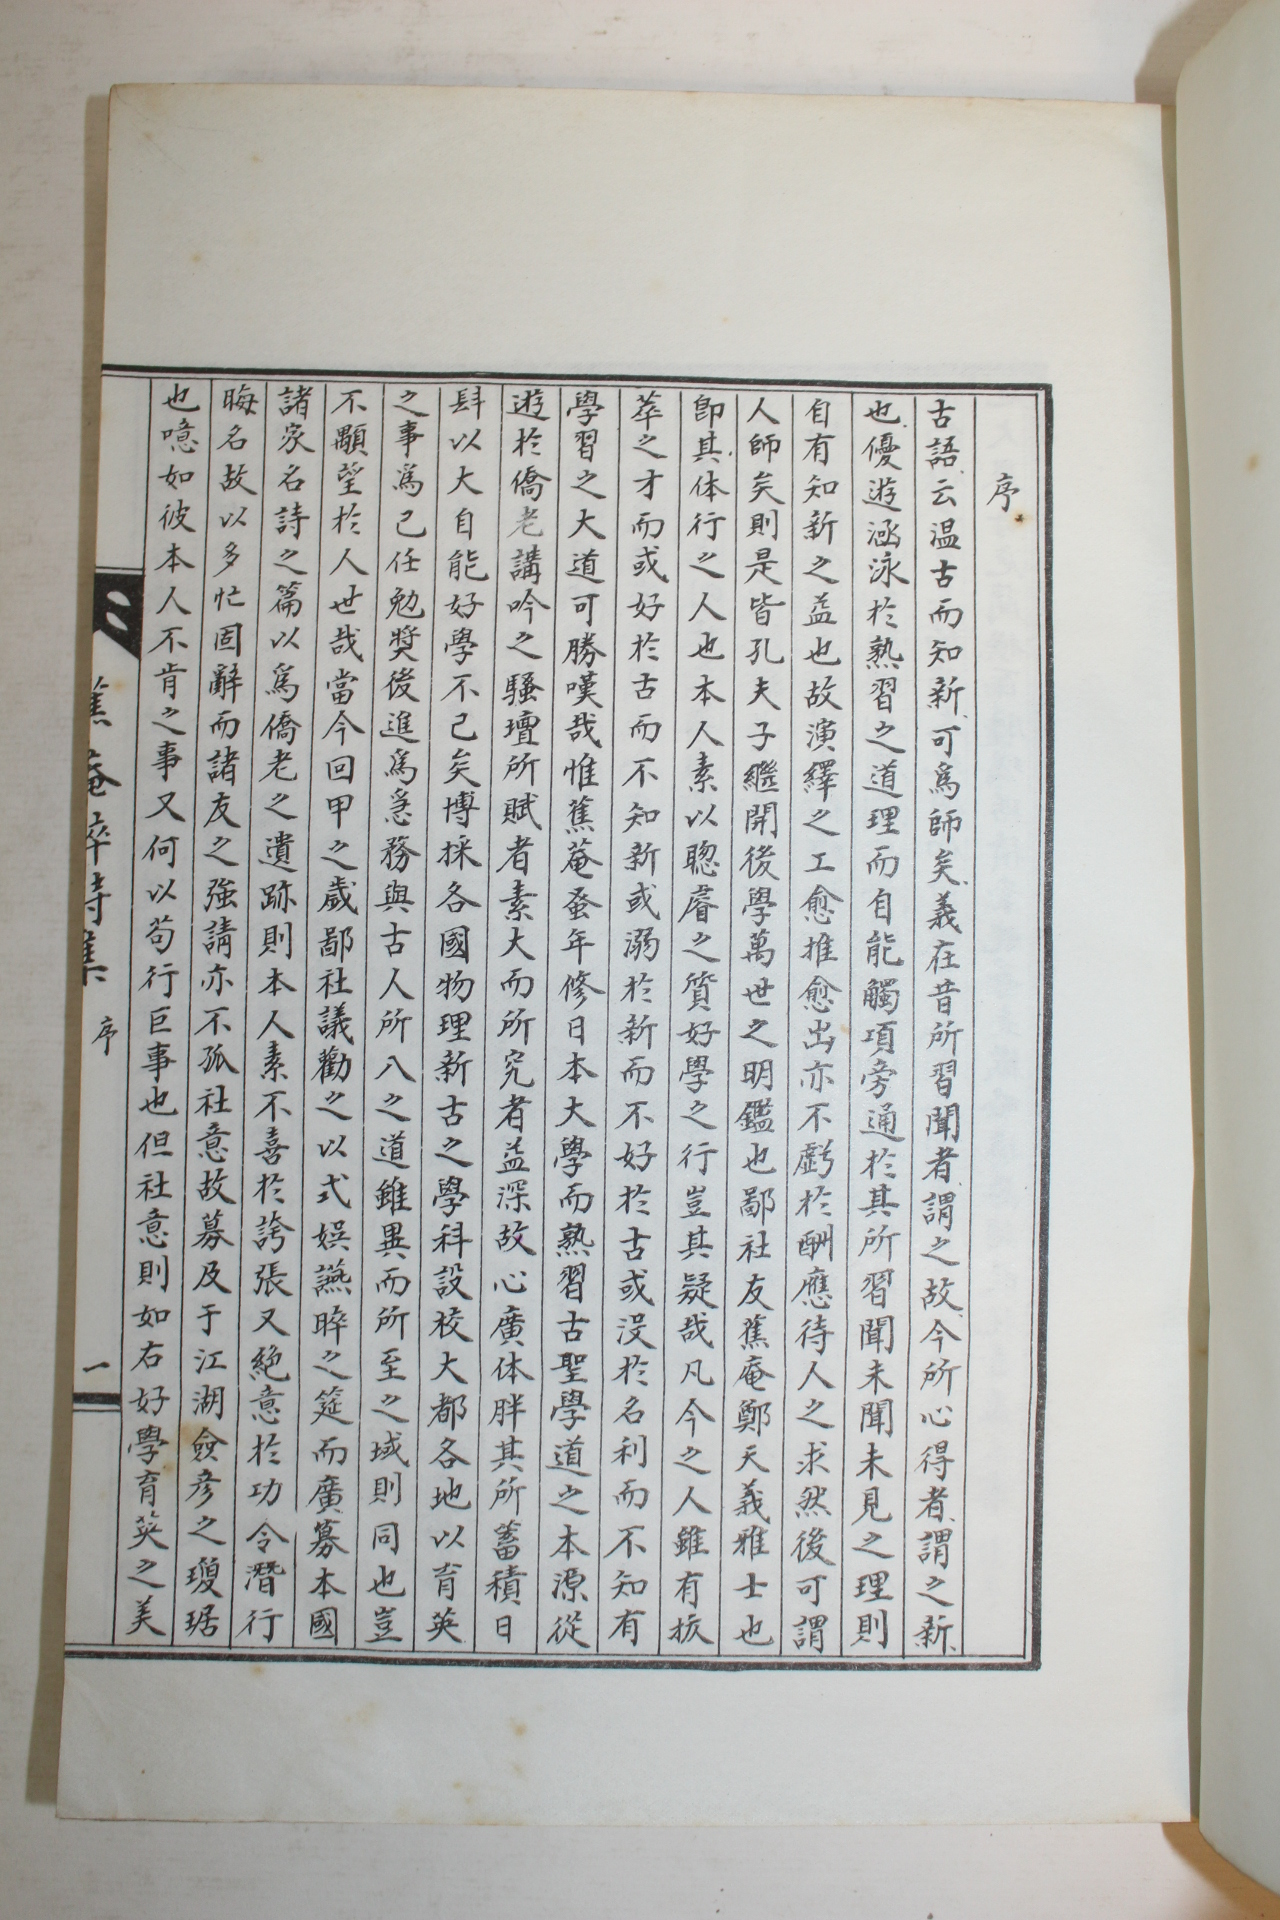 序
古語云温古而知新可爲師矣義在昔所習聞者謂之故今所心得者謂之新
也優遊涵泳於熟習之道理而自能觸項旁通於其所習聞未聞未見之理則
自有知新之益也故演繹之工愈推愈出亦不虧於酬應待人之求然後可謂
人師矣則是皆孔夫子繼開後學萬世之明鑑也鄙社友蕉庵鄭天義雅士也
卽其体行之人也本人素以聰睿之質好學之行豈其疑哉凡今之人雖有拔
萃之才而或好於古而不知新或溺於新而不好於古或沒於名利而不知有
學習之大道可勝嘆哉惟蕉菴蚤年修日本大學而熟習古聖學道之本源從
遊於僑老講吟之騷壇所賦者素大而所究者益深故心廣体胖其所蓄積日
肆以大自能好學不已矣博採各國物理新古之學科設校大都各地以育英
之事爲己任勉奬後進爲急務與古人所八之道雖異而所至之域則同也豈
不顒望於人世哉當今回甲之歲鄙社議勸之以式娛讌晬之筵而廣募本國
諸家名詩之篇以爲僑老之遺跡則本人素不喜於誇張又絕意於功令潛行
晦名故以多忙固辭而諸友之強請亦不孤社意故募及于江湖僉彦之瓊琚
也噫如彼本人不肯之事又何以苟行巨事也但社意則如右好學育英之美
蕉菴晬詩集 序 一